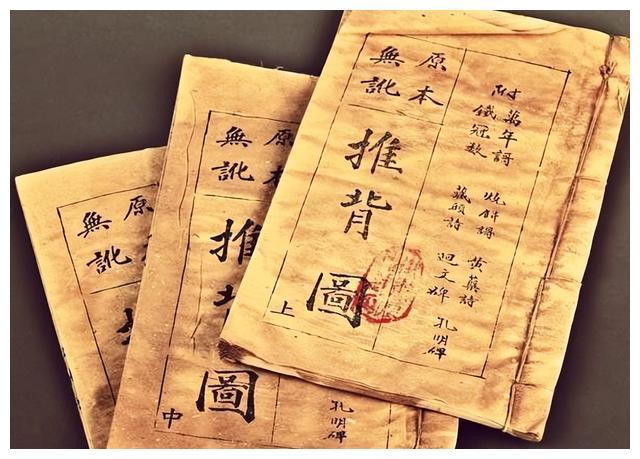 附
萬年謌
鐵冠数
燒餅謌
藏頭詩
黃蘗詩
迴文碑
孔明碑
原本
無訛
推背圖
上
原本
無訛
推
圖
中
孔明碑
原
無訛